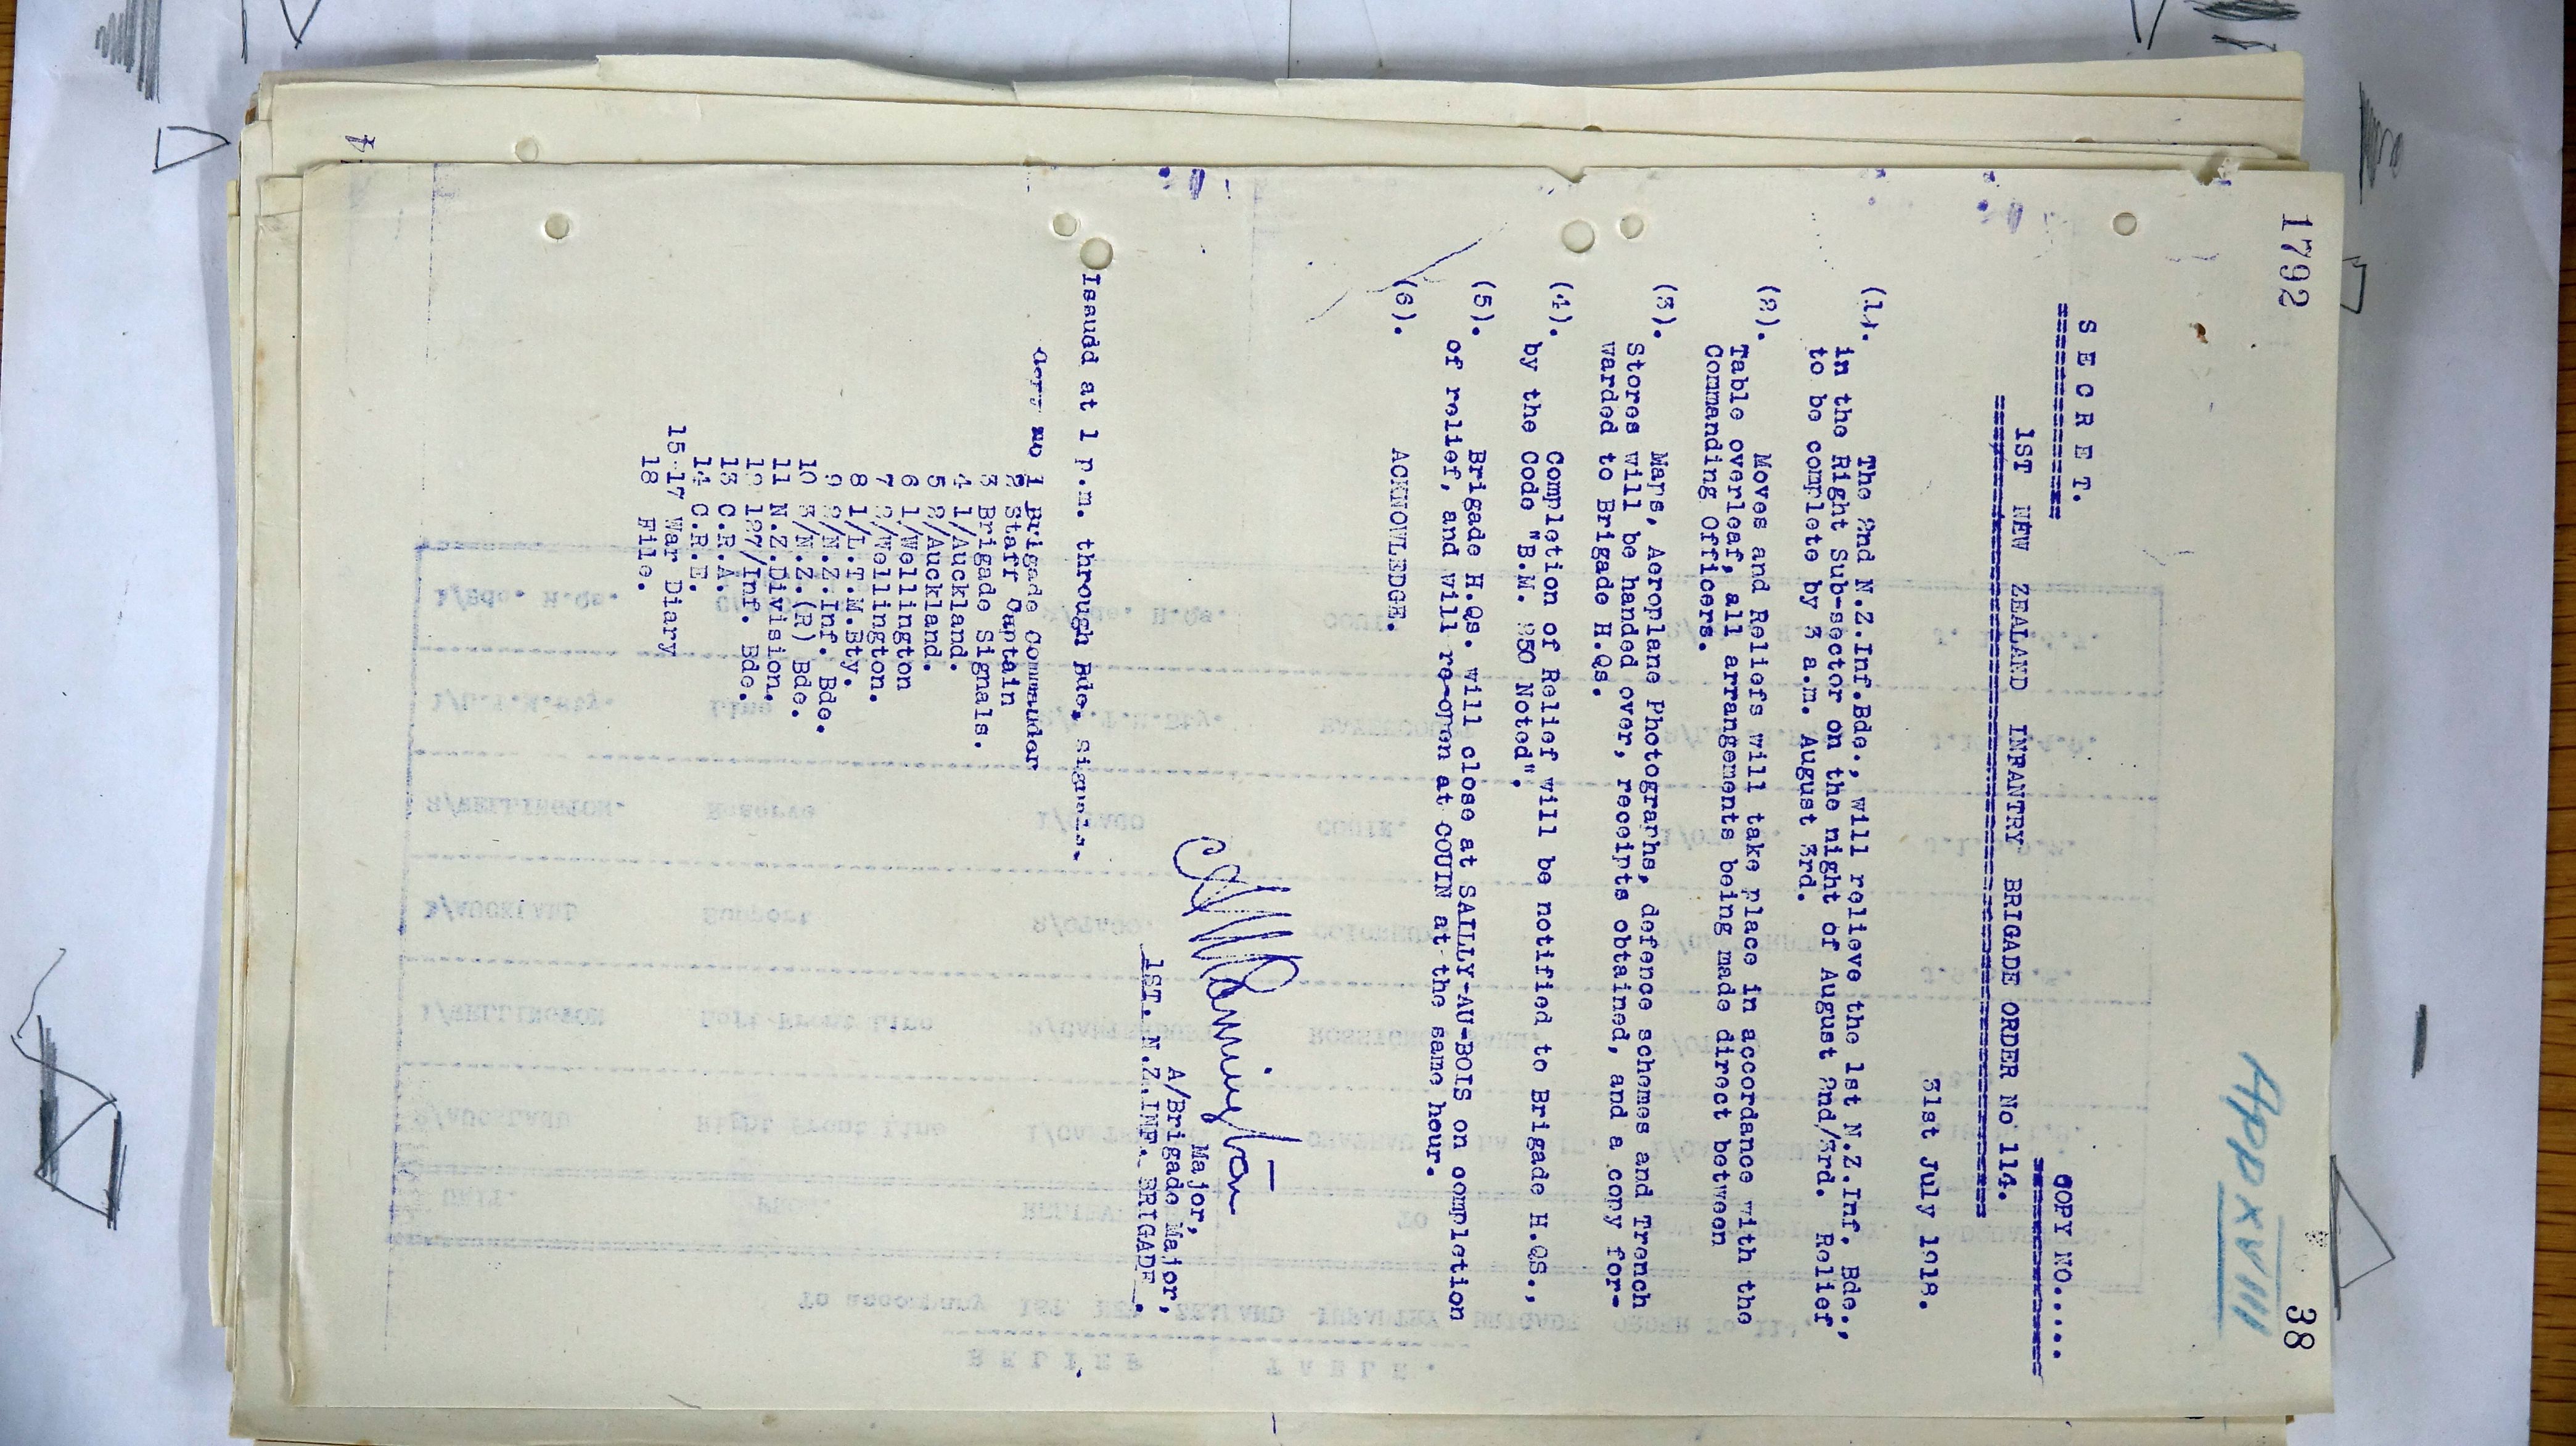 1792
38
App XVIII
S E C R E T.
COPY NO......
1ST NEW ZEALAND INFANTRY BRIGADE ORDER No 114.
31st July 1918.
(1). The 2nd N.Z.Inf.Bde., will relieve the 1st N.Z.Inf. Bde.,
in the Right Sub-sector on the night of August 2nd/3rd. Relief
to be complete by 3 a.m. August 3rd.
(2). Moves and Reliefs will take place in accordance with the
Table overleaf, all arrangements being made direct between
Commanding Officers.
(3). Maps, Aeroplane Photographs, defence schemes and Trench
Stores will be handed over, receipts obtained, and a copy for-
warded to Brigade H.Qs.
(4). Completion of Relief will be notified to Brigade H.QS.,
by the Code "B.M. 250 Noted".
(5). Brigade H.Qs. will close at SAILLY-AU-BOIS on completion
of relief, and will re-open at COUIN at the same hour.
(6). ACKNOWLEDGE.
Major,
A/Brigade Major,
1ST. N.Z.INF. BRIGADE.
Issudd at 1 p.m. through Bde. Signals.
Copy no 1 Brigade Commander
2 Staff Captain
3 Brigade Signals.
4 1/Auckland.
5 2/Auckland.
6 1/Wellington
7 2/Wellington.
8 1/L.T.M.Bty.
9 2/N.Z.Inf. Bde.
10 3/N.Z.(R) Bde.
11 N.Z.Division.
12 127/Inf. Bde.
13 C.R.A.
14 C.R.E.
15-17 War Diary
18 File.
4